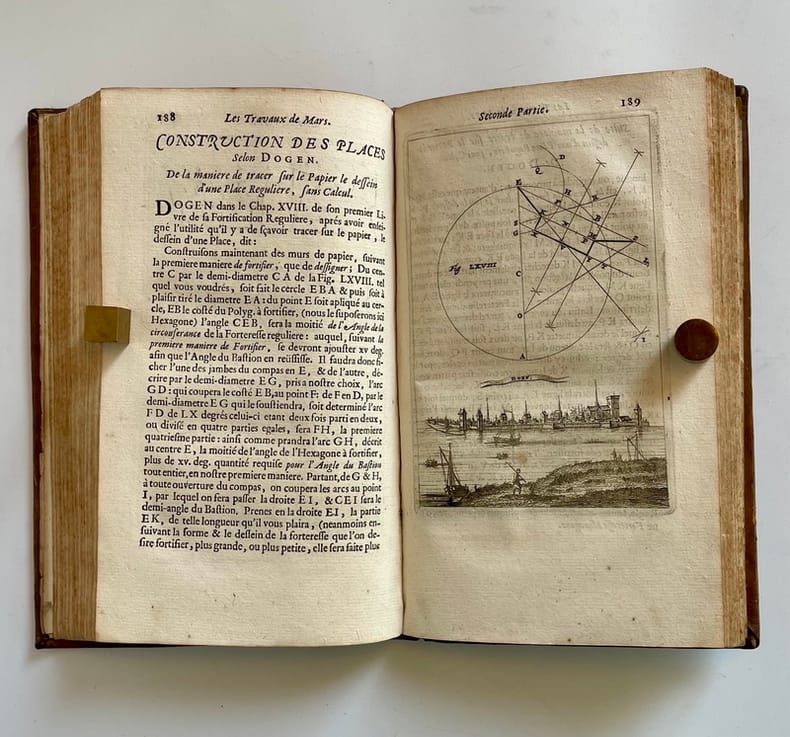 188 Les Travaux de Mars.
CONSTRUCTION DES PLACES
Selon DOGEN.
De la maniere de tracer sur le Papier le dessein
d'une Place Reguliere, sans Calcul.
DOGEN dans le Chap. XVIII. de son premier Li-
vre de sa Fortification Reguliere, aprés avoir ensei-
gné l'utilité qu'il y a de sçavoir tracer sur le papier, le
dessein d'une Place, dit:
Construisons maintenant des murs de papier, suivant
la premiere maniere de fortifier, que de dessigner; Du cen-
tre C par le demi-diametre C A de la Fig. LXVIII. tel
quel vous voudrés, soit fait le cercle E B A & puis soit à
plaisir tiré le diametre E A: du point E soit apliqué au cer-
cle, EB le costé du Polyg. à fortifier, (nous le suposerons ici
Hexagone) l'angle CEB, sera la moitié de l'Angle de la
circonferance de la Forteresse reguliere: auquel, suivant la
premiere maniere de Fortifier, se devront ajouster xv deg.
afin que l'Angle du Bastion en reüssisse. Il faudra donc fi-
cher l'une des jambes du compas en E, & de l'autre, dé-
crire par le demi-diametre E G, pris a nostre choix, l'arc
G D: qui coupera le costé E B, au point F: de F en D, par le
demi-diametre E G qui le soustiendra, soit determiné l'arc
F D de L X degrés celui-ci etant deux fois parti en deux,
ou divisé en quatre parties egales, sera F H, la premiere
quatriesme partie: ainsi comme prandra l'arc G H, décrit
au centre E, la moitié de l'angle de l'Hexagone à fortifier,
plus de xv. deg. quantité requise pour l'Angle du Bastion
tout entier, en nostre premiere maniere. Partant, de G & H,
à toute ouverture du compas, on coupera les arcs au point
I, par lequel on sera passer la droite E I, & C E I sera le
demi-angle du Bastion. Prenes en la droite E I, la partie
E K, de telle longueur qu'il vous plaira, (neanmoins en-
suivant la forme & le dessein de la forteresse que l'on de-
sire fortifier, plus grande, ou plus petite, elle sera faite plus
Seconde Partie. 189
D
Q
E
H
R
F
B
S
G
Fig LXVIII
C
O
I
A